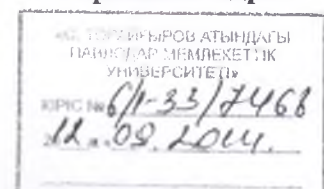 С. ТОРАЙҒЫРОВ АТЫНДАҒЫ
ПАВЛОДАР МЕМЛЕКЕТТІК
УНИВЕРСИТЕТІ»
КІРІС № 6/1-33/7468
12 . 09. 2014.